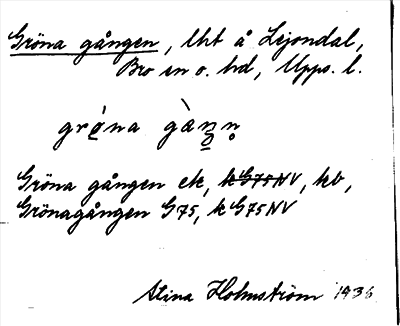 Gröna gången, lht å Lejondal,
Bro sn o. hd, Upps. l.
grö̀na gàŋn̥
Gröna gången ek, k G75NV, kb,
Grönagången G75, k G75NV
Stina Holmström 1936